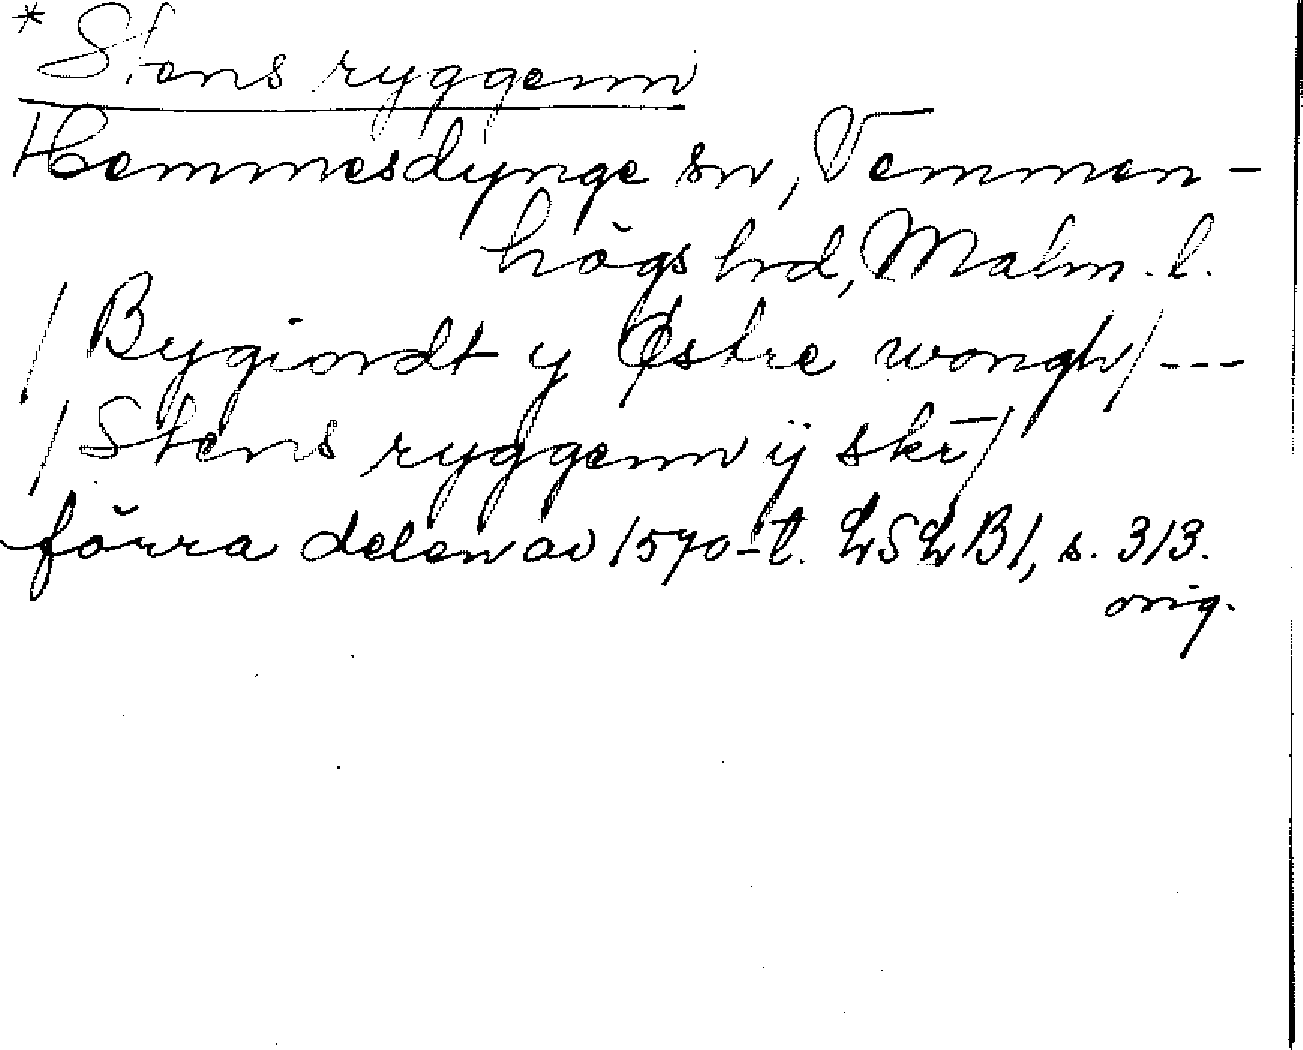 * Stens ryggenn
Hemmesdynge sn, Vemmen-
högs hd, Malm. l.
/ Bygiordt y Østre wongh / ---
/ Stens ryggenn ij skr /
förra delen av 1590-t. LSLB1, s. 313.
orig.